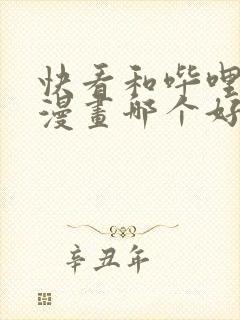 快看和哔哩
漫畫哪个好
辛丑年